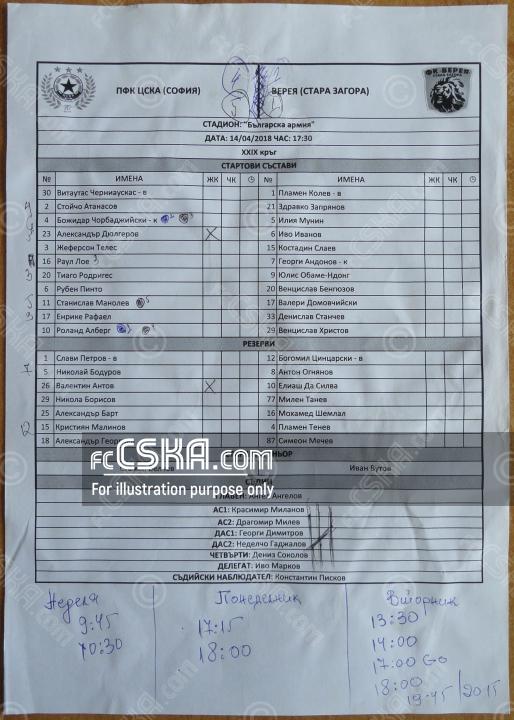 ПФК ЦСКА (СОФИЯ) ВЕРЕЯ (СТАРА ЗАГОРА)
ФК ВЕРЕЯ
СТАДИОН: "Българска армия"
ДАТА: 14/04/2018 ЧАС: 17:30
XXIX кръг
СТАРТОВИ СЪСТАВИ
№ ИМЕНА ЖК ЧК № ИМЕНА ЖК ЧК
30 Витаутас Черниаускас - в 1 Пламен Колев - в
2 Стойчо Атанасов 21 Здравко Запрянов
4 Божидар Чорбаджийски - к 5 Илия Мунин
23 Александър Дюлгеров 6 Иво Иванов
3 Жеферсон Телес 15 Костадин Слаев
16 Раул Лое 3 7 Георги Андонов - к
20 Тиаго Родригес 9 Юлис Обаме-Ндонг
6 Рубен Пинто 20 Венцислав Бенгюзов
11 Станислав Манолев 17 Валери Домовчийски
17 Енрике Рафаел 33 Денислав Станчев
10 Роланд Алберг 29 Венцислав Христов
РЕЗЕРВИ
1 Слави Петров - в 12 Богомил Цинцарски - в
5 Николай Бодуров 8 Антон Огнянов
26 Валентин Антов 10 Елиаш Да Силва
29 Никола Борисов 77 Милен Танев
25 Александър Барт 16 Мохамед Шемлал
15 Кристиян Малинов 4 Пламен Тенев
18 Александър Георг 87 Симеон Мечев
fcCSKA.com
Иван Бутов
For illustration purpose only
Ангелов
АС1: Красимир Миланов
АС2: Драгомир Милев
ДАС1: Георги Димитров
ДАС2: Неделчо Гаджалов
ЧЕТВЪРТИ: Дениз Соколов
ДЕЛЕГАТ: Иво Марков
СЪДИЙСКИ НАБЛЮДАТЕЛ: Константин Писков
Неделя Понеделник Вторник
9:45 17:15 13:30
10:30 18:00 14:00
17:00 Go
18:00
19:45 / 2015